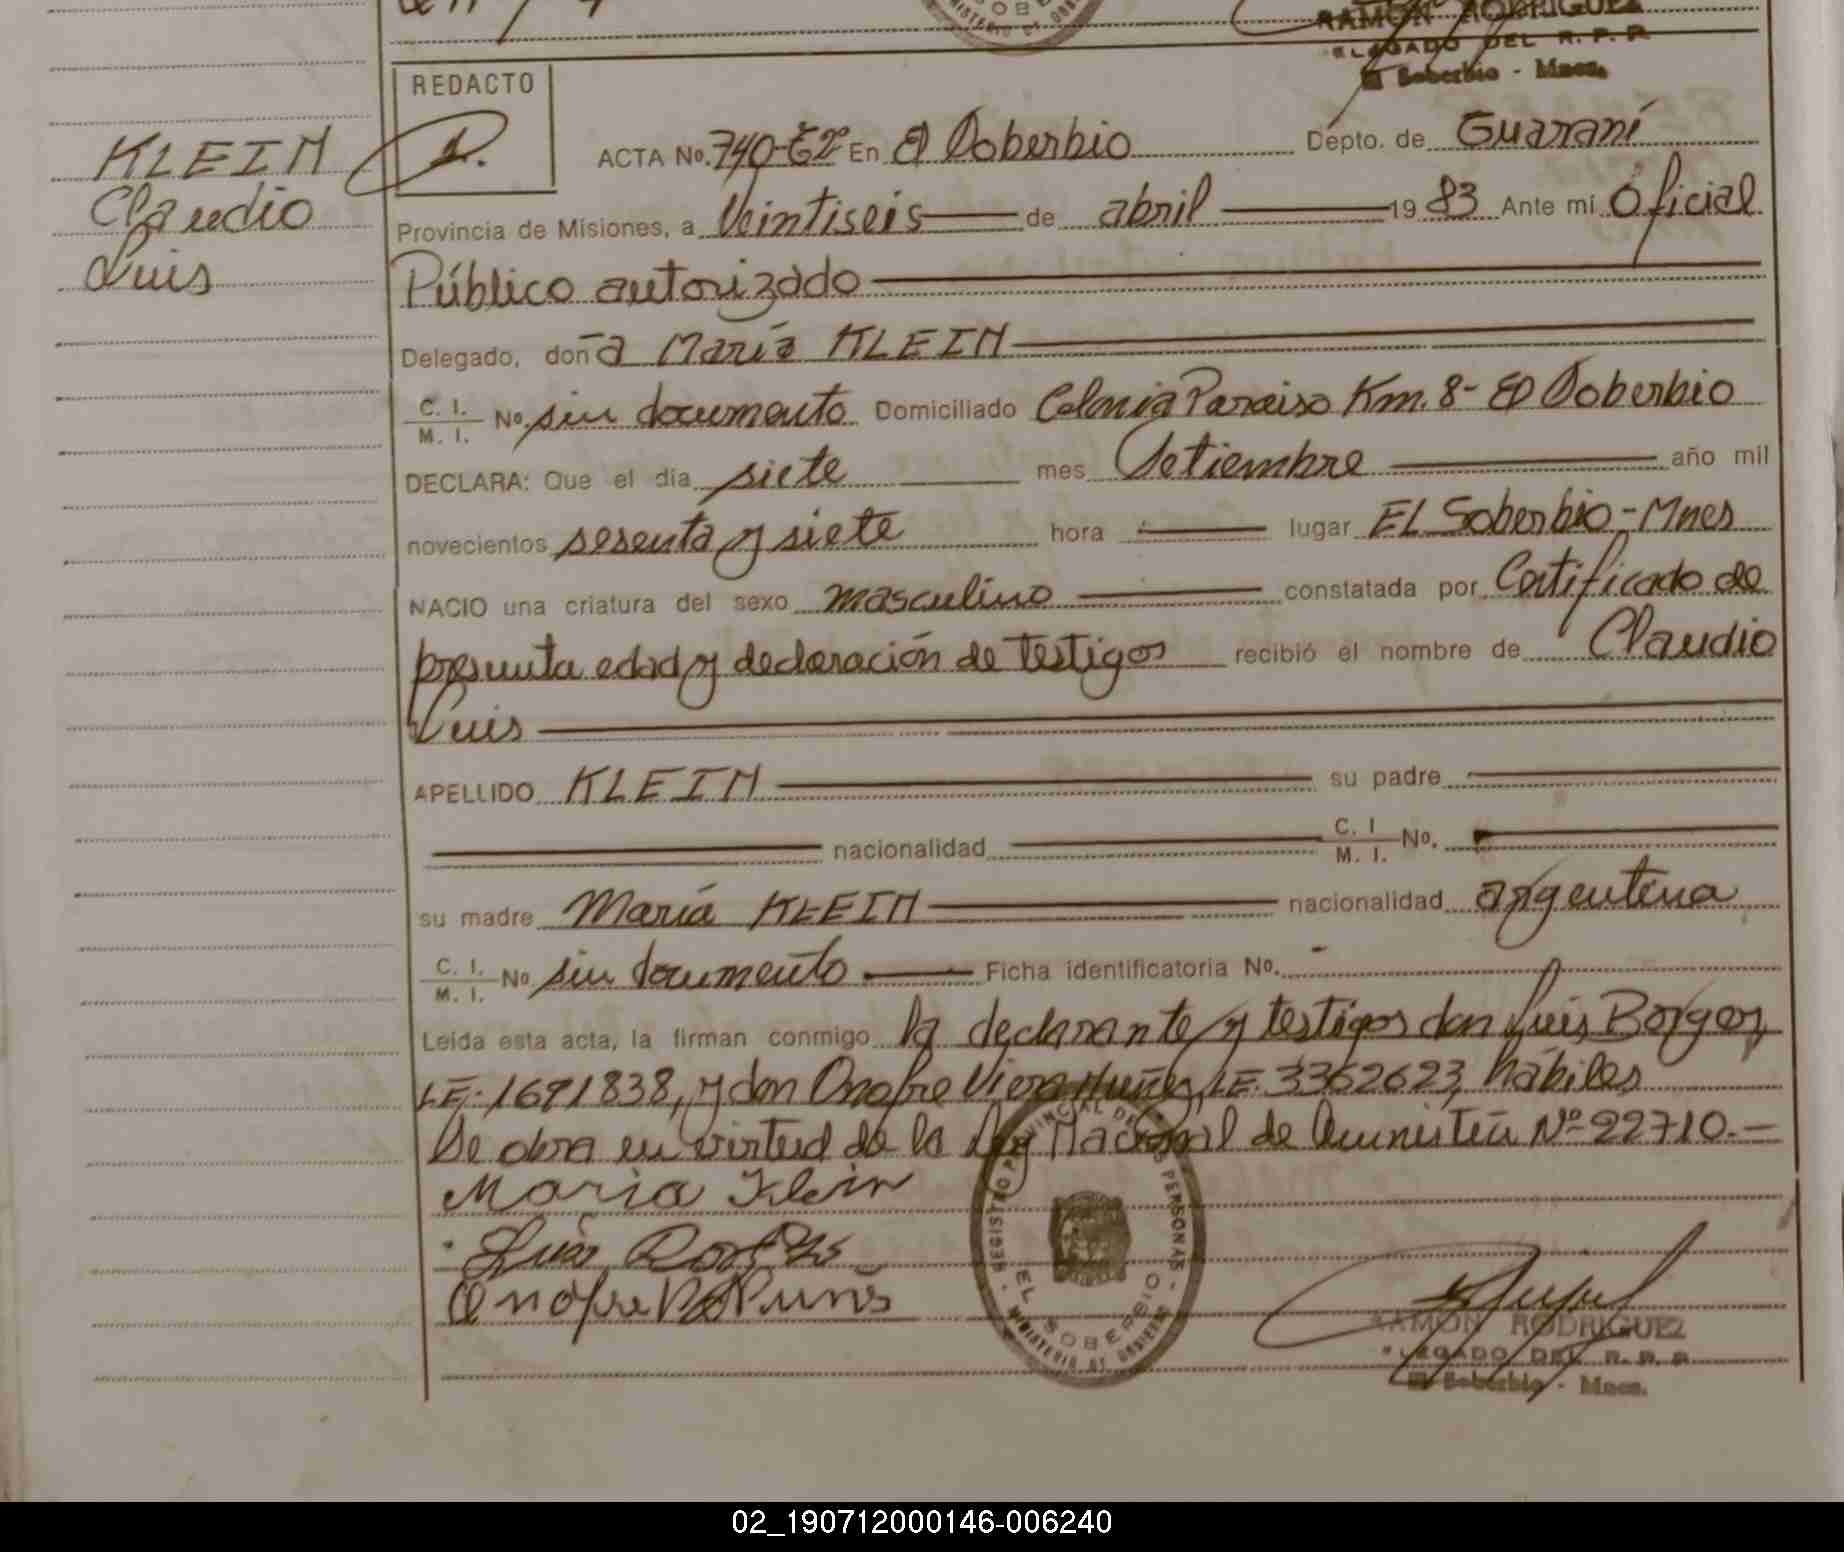 RAMON RODRIGUEZ
DELEGADO DEL R. P. P.
El Soberbio - Mnes.
REDACTO
1.
KLEIN
Claudio
Luis
ACTA No. 740-Eº En El Soberbio Depto. de Guaraní
Provincia de Misiones, a Veintiseis de abril 19 83 Ante mi Oficial
Público autorizado
Delegado, doña María KLEIN
C. I. M. I. No. sin documento Domiciliado Colonia Paraiso Km. 8- El Soberbio
DECLARA: Que el día siete mes Setiembre año mil
novecientos sesenta y siete hora lugar EL Soberbio - Mnes
NACIO una criatura del sexo masculino constatada por Certificado de
presunta edad y declaración de testigos recibió el nombre de Claudio
Luis
APELLIDO KLEIN su padre
nacionalidad C. I M. I. No.
su madre María KLEIN nacionalidad argentina
C. I. M. I. No sin documento Ficha identificatoria No. -
Leída esta acta, la firman conmigo la declarante y testigos don Luis Borges
LE. 1691838, y don Onofre Viera Nuñes, LE. 3362623, hábiles
Se obra en virtud de la Ley Nacional de Amnistía Nº 22710.-
Maria Klein
Luis Borges
Onofre
REGISTRO PROVINCIAL DE LAS PERSONAS - MINISTERIO DE GOBIERNO - EL SOBERBIO
RAMON RODRIGUEZ
DELEGADO DEL R. P. P.
El Soberbio - Mnes.
02_190712000146-006240